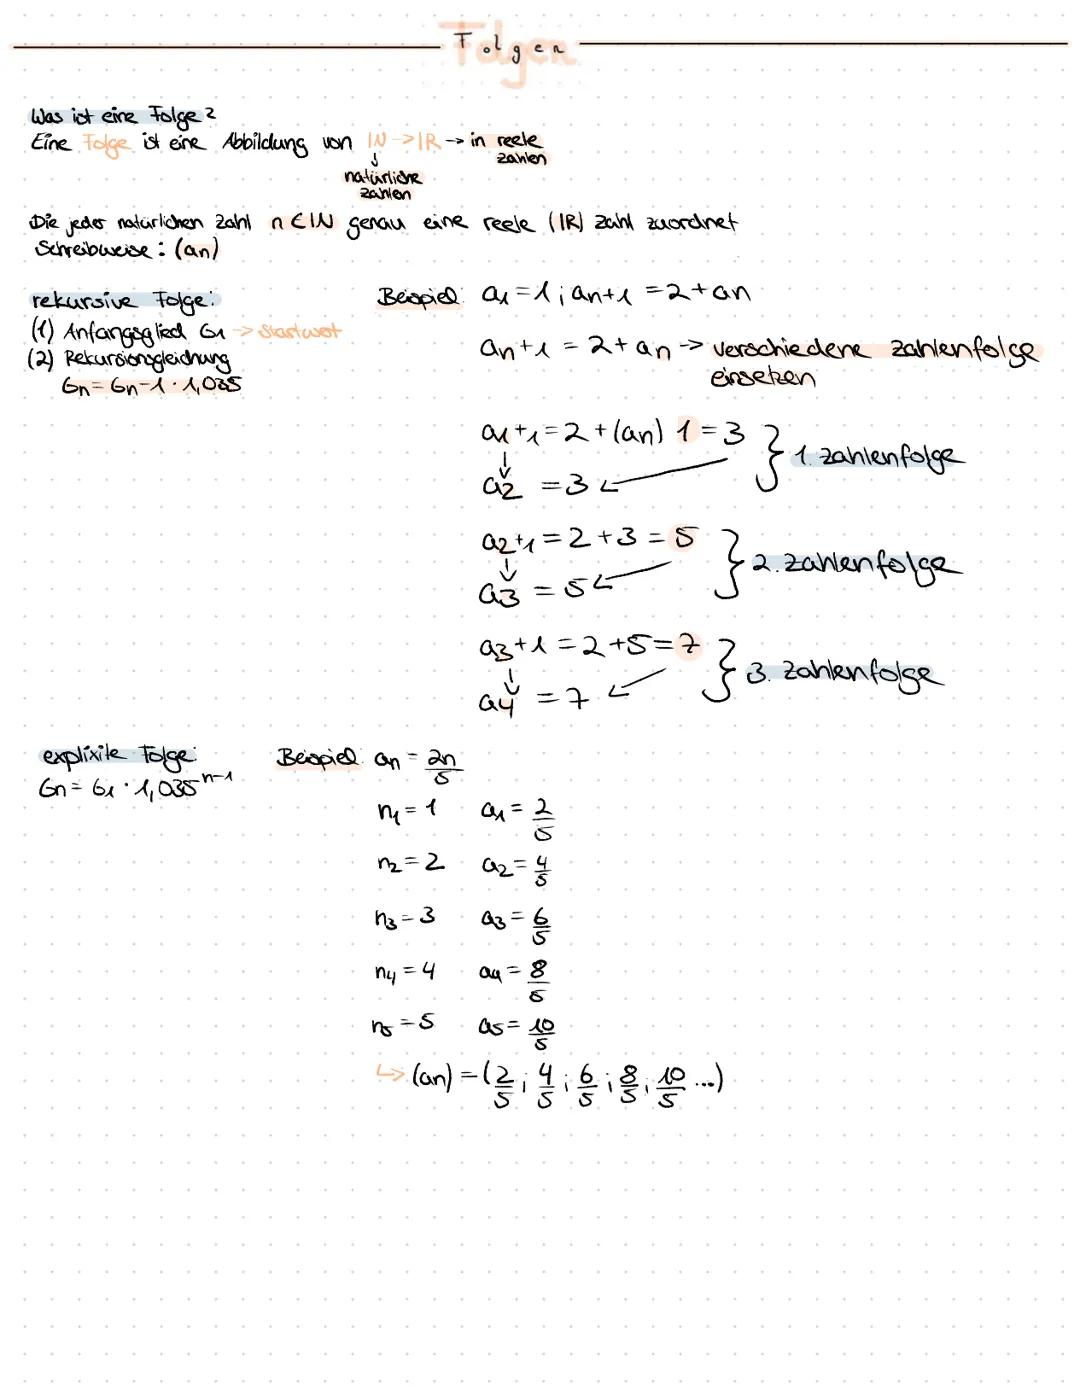 Folgen
Was ist eine Folge?
Eine Folge ist eine Abbildung von IN -> IR -> in reele zahlen
↓
natürliche zahlen
Die jeder natürlichen Zahl n ∈ IN genau eine reele (IR) zahl zuordnet
Schreibweise: (an)
rekursive Folge:
(1) Anfangsglied G1 -> Startwert
(2) Rekursionsgleichung
Gn = Gn-1 · 1,035
Beispiel: a1 = 1 ; an+1 = 2 + an
an+1 = 2 + an -> verschiedene zahlenfolge
einsetzen
a1+1 = 2 + (an) 1 = 3
a2 = 3
} 1. zahlenfolge
a2+1 = 2 + 3 = 5
a3 = 5
} 2. zahlenfolge
a3+1 = 2 + 5 = 7
a4 = 7
} 3. zahlenfolge
explixite Folge:
Gn = G1 · 1,035^n-1
Beispiel: an = 2n/5
n1 = 1 a1 = 2/5
n2 = 2 a2 = 4/5
n3 = 3 a3 = 6/5
n4 = 4 a4 = 8/5
n5 = 5 a5 = 10/5
↳ (an) = (2/5 ; 4/5 ; 6/5 ; 8/5 ; 10/5 ...)